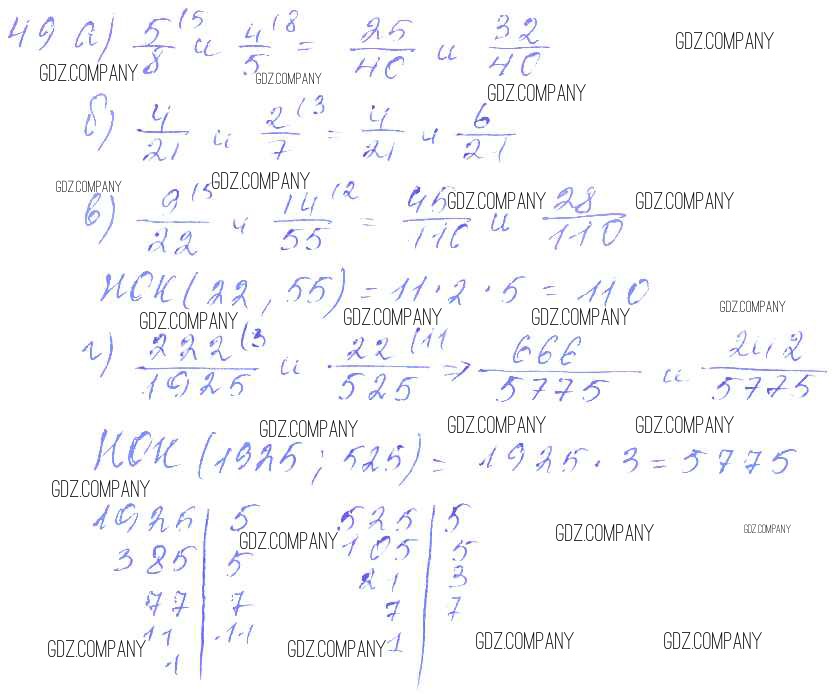 49 а) 5/8 (5 и 4/5 (8 = 25/40 и 32/40
GDZ.COMPANY
GDZ.COMPANY GDZ.COMPANY
GDZ.COMPANY
б) 4/21 и 2/7 (3 = 4/21 и 6/21
GDZ.COMPANY GDZ.COMPANY
GDZ.COMPANY GDZ.COMPANY
в) 9/22 (5 и 14/55 (2 = 45/110 и 28/110
НОК (22, 55) = 11 · 2 · 5 = 110
GDZ.COMPANY
GDZ.COMPANY GDZ.COMPANY GDZ.COMPANY
г) 222/1925 (3 и 22/525 (11 => 666/5775 и 242/5775
GDZ.COMPANY GDZ.COMPANY GDZ.COMPANY
НОК (1925; 525) = 1925 · 3 = 5775
GDZ.COMPANY
1925 | 5 525 | 5
GDZ.COMPANY GDZ.COMPANY GDZ.COMPANY
385 | 5 105 | 5
77 | 7 21 | 3
11 | 11 7 | 7
1 1
GDZ.COMPANY GDZ.COMPANY GDZ.COMPANY GDZ.COMPANY